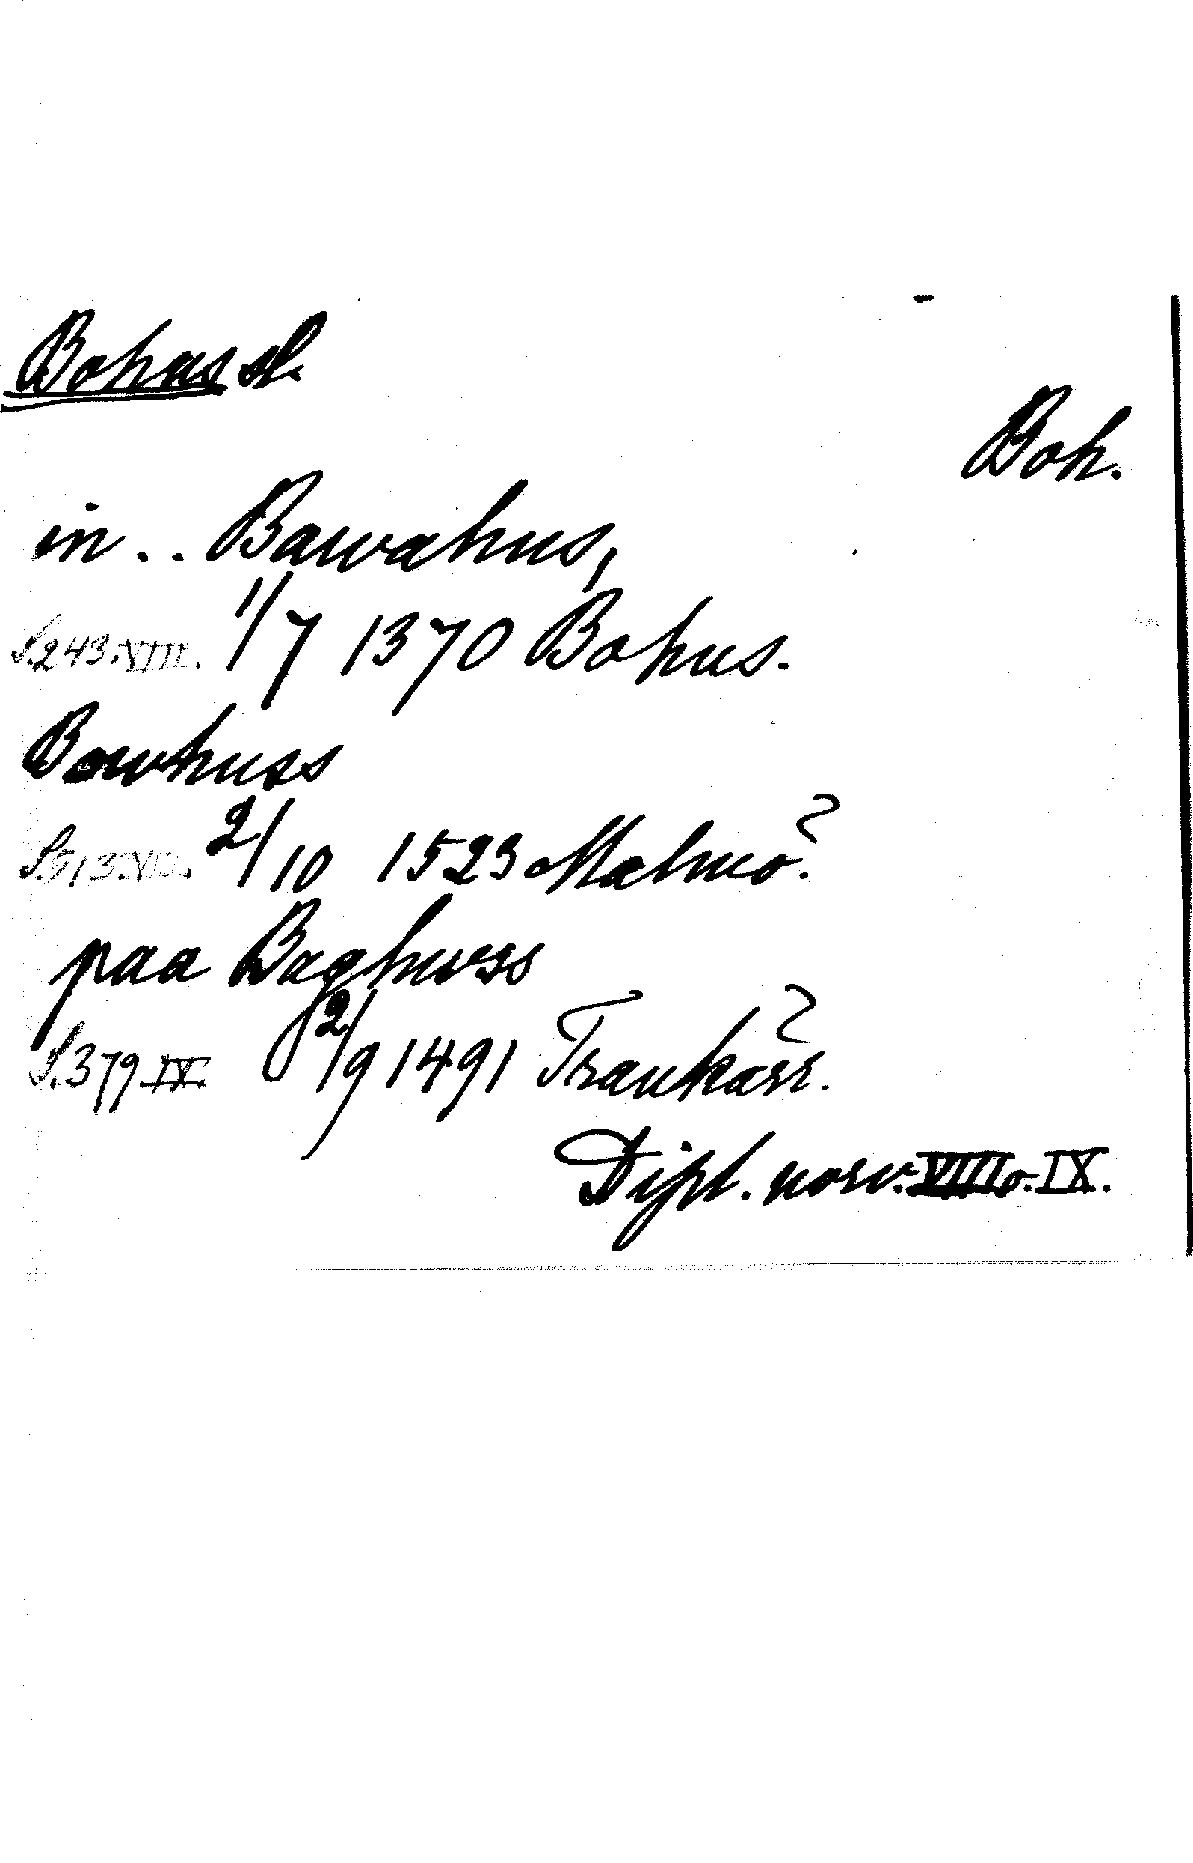 Bohus sl.
Boh.
in . . Bawahus,
S. 243. VIII. 1/7 1370 Bohus.
Bawhuss
S. 513. VIII. 2/10 1523 Malmö.
paa Baghwss
S. 379 IX. 2/9 1491 Trankärr.
Dipl. norv. VIII o. IX.